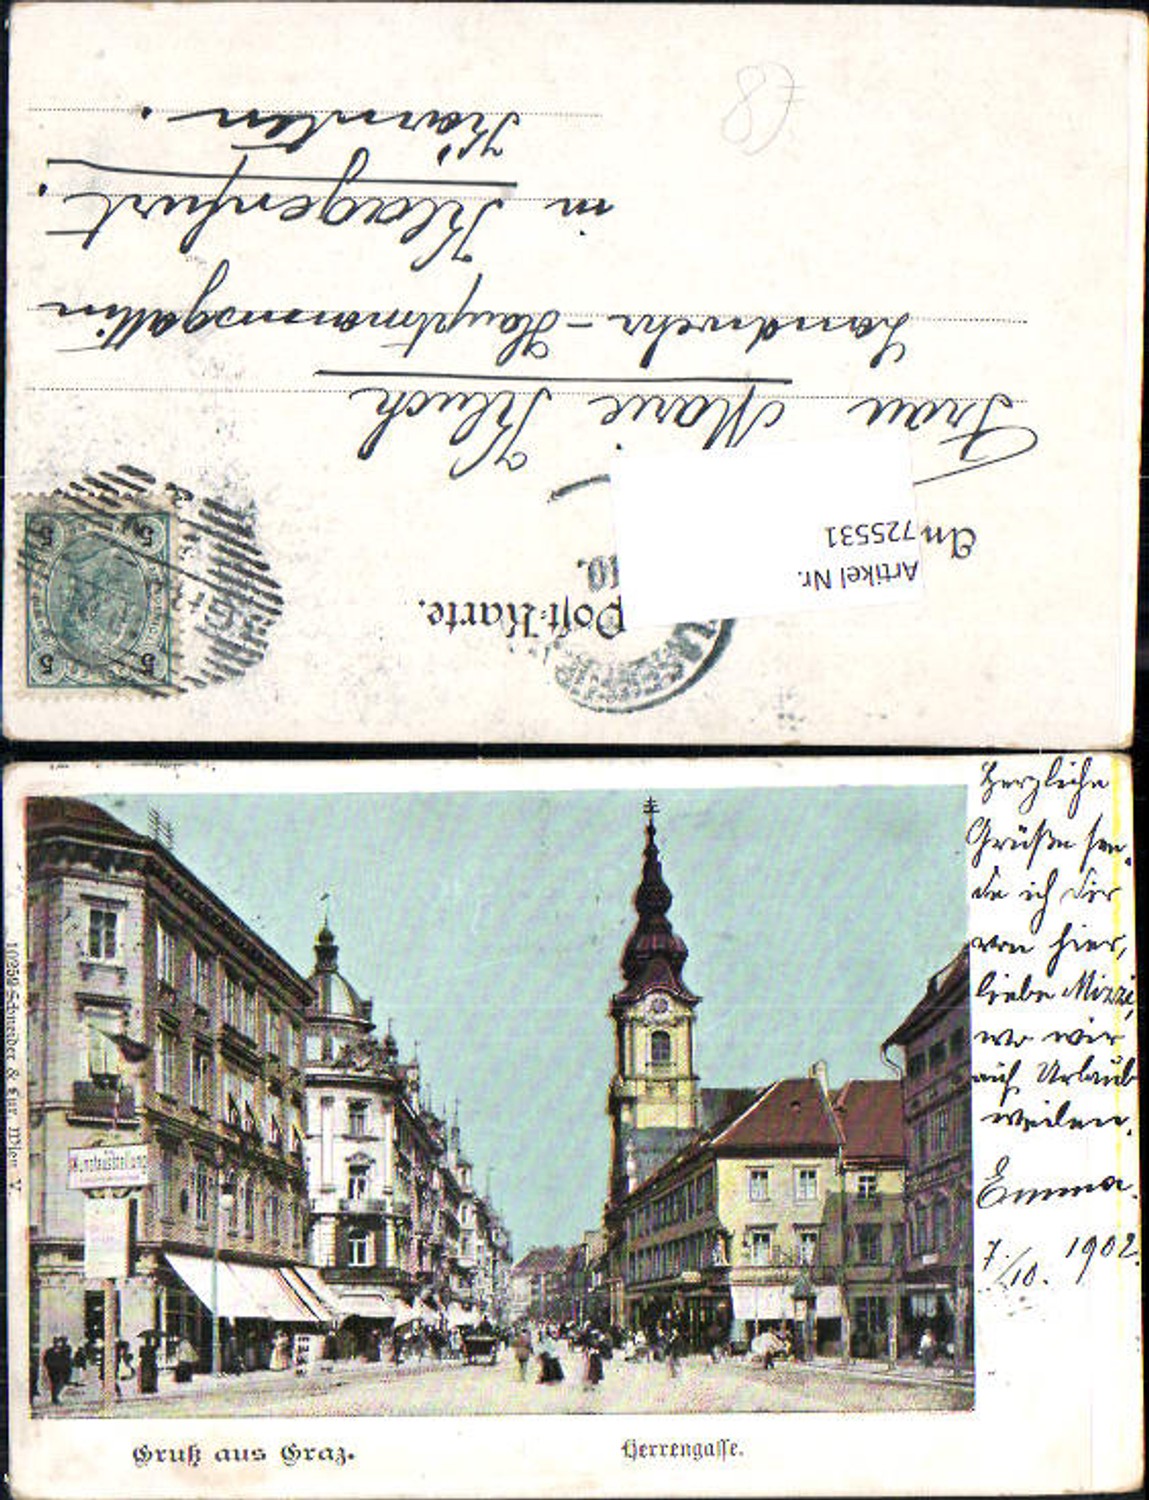 Post-Karte.
An
Artikel Nr.
725531
10.
5 5
5 5
Frau Marie Kluch
Landwehr-Hauptmannsgattin
in Klagenfurt.
Kärnten.
Herzliche
Grüße sen-
de ich Dir
von hier,
liebe Mizzi,
wo wir
auf Urlaub
weilen.
Emma.
7./10. 1902.
Kunstausstellung
10259 Schneider & Lux, Wien V.
Gruß aus Graz.
Herrengasse.